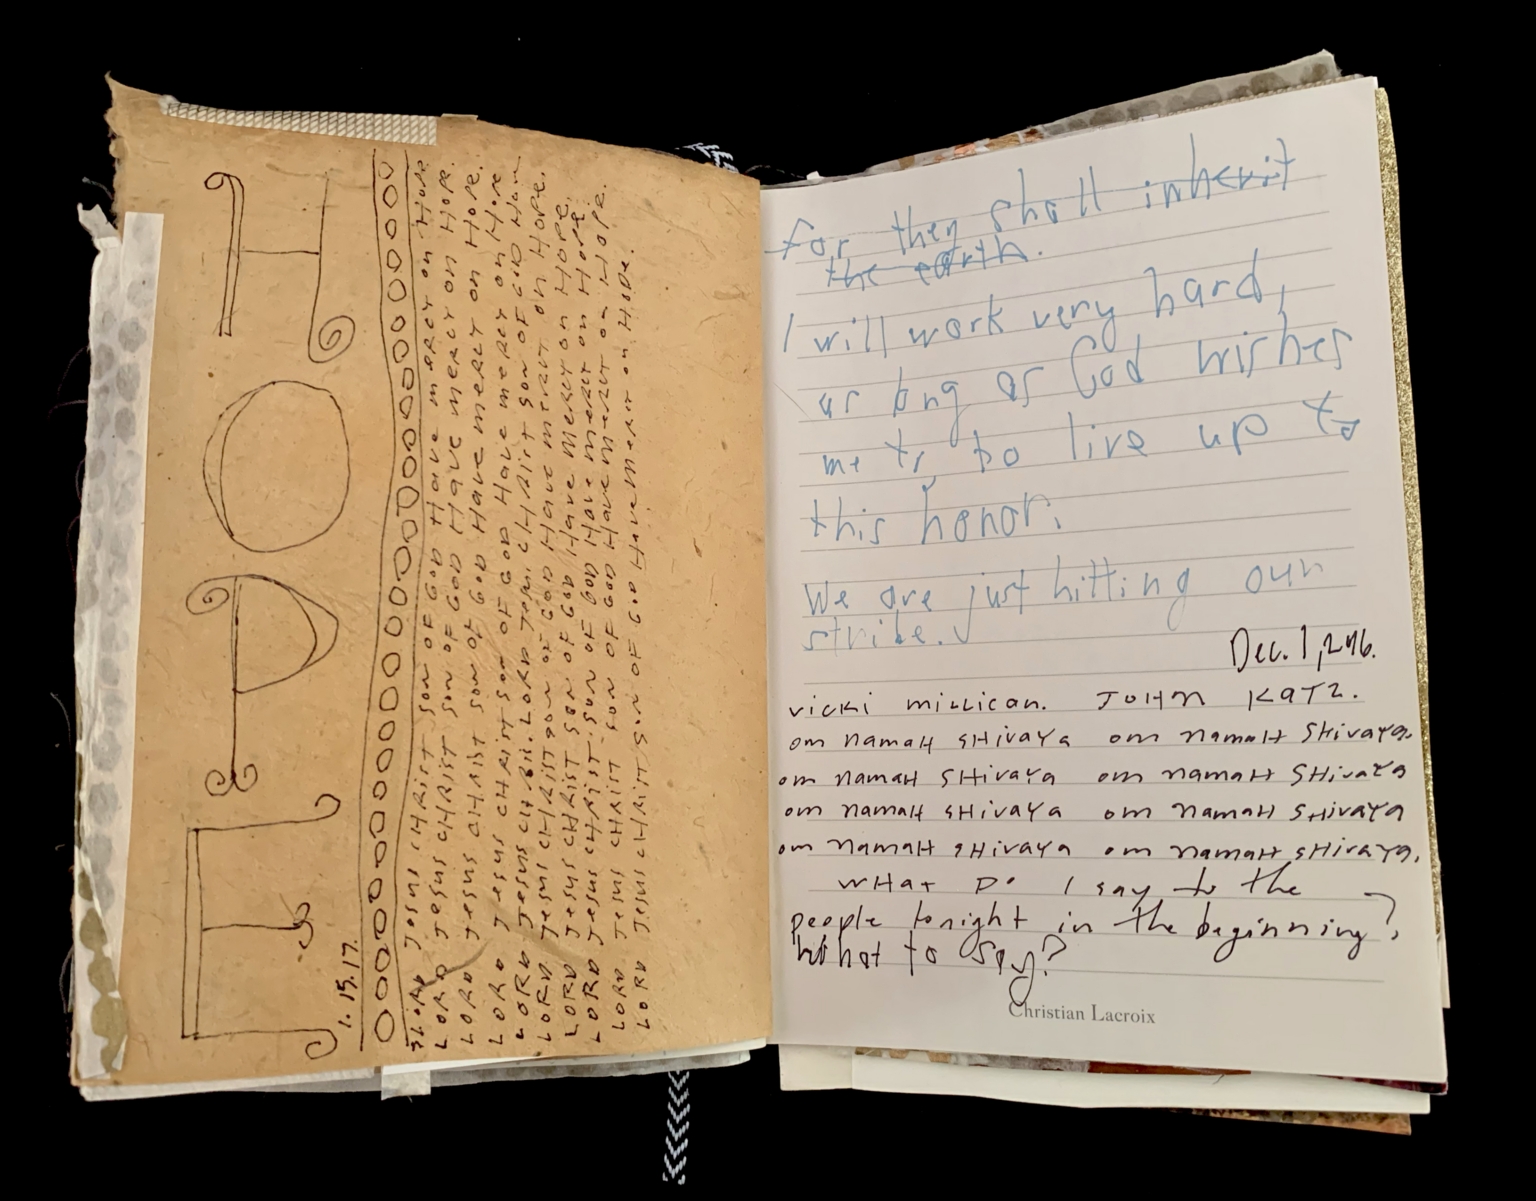 HOPE
1.15.17.
LORD JESUS CHRIST SON OF GOD HAVE MERCY ON HOPE
LORD JESUS CHRIST SON OF GOD HAVE MERCY ON HOPE.
LORD JESUS CHRIST SON OF GOD HAVE MERCY ON HOPE.
LORD JESUS CHRIST SON OF GOD HAVE MERCY ON HOPE
LORD JESUS CHRIST. LORD JESUS CHRIST SON OF GOD HAVE
LORD JESUS CHRIST SON OF GOD HAVE MERCY ON HOPE.
LORD JESUS CHRIST SON OF GOD HAVE MERCY ON HOPE.
LORD JESUS CHRIST SON OF GOD HAVE MERCY ON HOPE.
LORD JESUS CHRIST SON OF GOD HAVE MERCY ON HOPE.
LORD JESUS CHRIST SON OF GOD HAVE MERCY ON HOPE.
for they shall inherit
the earth.
I will work very hard,
as long as God wishes
me to, to live up to
this honor.
We are just hitting our
stride.
Dec. 1, 2016.
vicki millican. JOHN KATZ.
om namaH SHivaya om namaH SHivaya.
om namaH SHivaya om namaH SHivaya
om namaH SHivaya om namaH SHivaya
om namaH SHivaya om namaH SHivaya.
WHat Do I say to the
people tonight in the beginning?
What to say?
Christian Lacroix